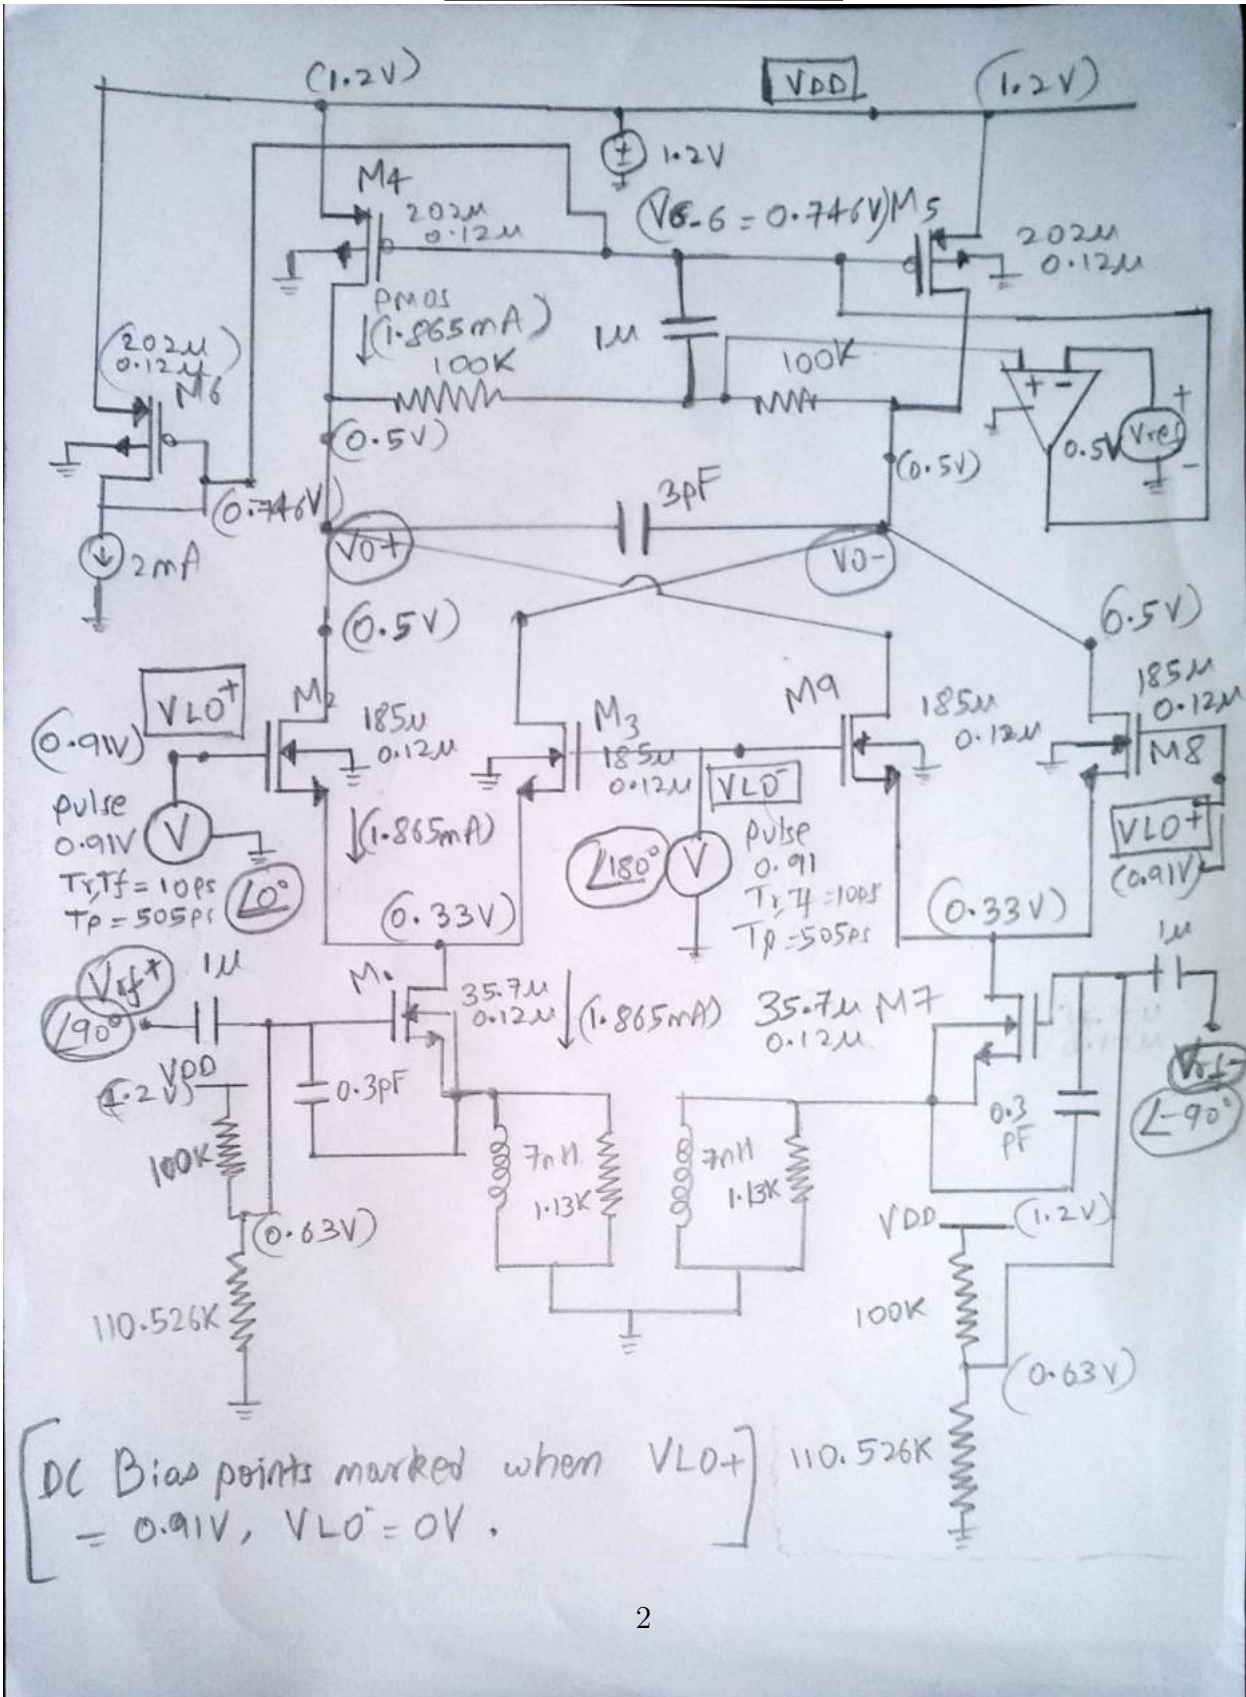 (1.2V)
VDD
(1.2V)
1.2V
M4
202μ
0.12μ
(VG-6 = 0.746V)
M5
202μ
0.12μ
PMOS
(1.865mA)
100K
1μ
100K
(202μ
0.12μ)
M6
+ -
+
0.5V
Vref
-
(0.5V)
(0.5V)
(0.746V)
3pF
2mA
VO+
VO-
(0.5V)
(0.5V)
VLO+
M2
185μ
0.12μ
M3
185μ
0.12μ
M9
185μ
0.12μ
185μ
0.12μ
M8
(0.91V)
pulse
0.91V
V
Tr,Tf = 10ps
Tp = 505ps
∠0°
(1.865mA)
VLO-
∠180°
V
pulse
0.91
Tr,Tf = 10ps
Tp = 505ps
VLO+
(0.91V)
(0.33V)
(0.33V)
Vrf+
∠90°
1μ
35.7μ
0.12μ
(1.865mA)
35.7μ M7
0.12μ
1μ
Vrf-
∠-90°
VDD
(1.2V)
0.3pF
0.3
pF
100K
7nH
1.13K
7nH
1.13K
(0.63V)
VDD
(1.2V)
110.526K
100K
(0.63V)
110.526K
DC Bias points marked when VLO+
= 0.91V, VLO- = 0V.
2